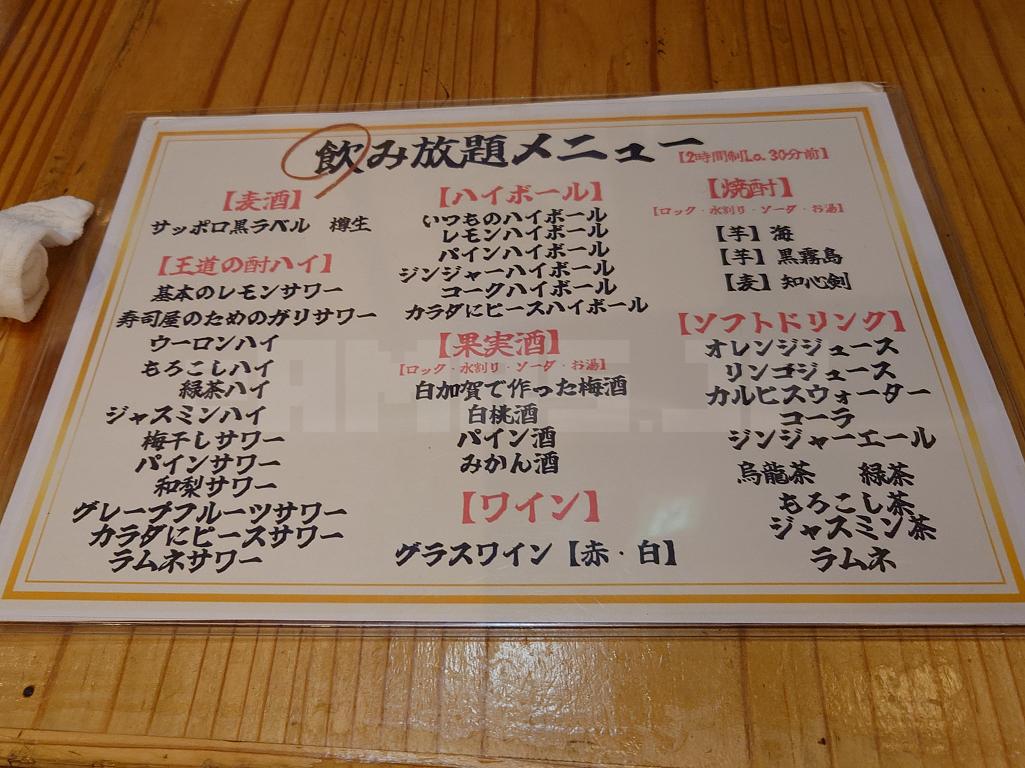 飲み放題メニュー
【2時間制Lo.30分前】
【麦酒】
サッポロ黒ラベル 樽生
【王道の酎ハイ】
基本のレモンサワー
寿司屋のためのガリサワー
ウーロンハイ
もろこしハイ
緑茶ハイ
ジャスミンハイ
梅干しサワー
パインサワー
和梨サワー
グレープフルーツサワー
カラダにピースサワー
ラムネサワー
【ハイボール】
いつものハイボール
レモンハイボール
パインハイボール
ジンジャーハイボール
コークハイボール
カラダにピースハイボール
【果実酒】
【ロック・水割り・ソーダ・お湯】
白加賀で作った梅酒
白桃酒
パイン酒
みかん酒
【ワイン】
グラスワイン【赤・白】
【焼酎】
【ロック・水割り・ソーダ・お湯】
【芋】海
【芋】黒霧島
【麦】知心剣
【ソフトドリンク】
オレンジジュース
リンゴジュース
カルピスウォーター
コーラ
ジンジャーエール
烏龍茶 緑茶
もろこし茶
ジャスミン茶
ラムネ